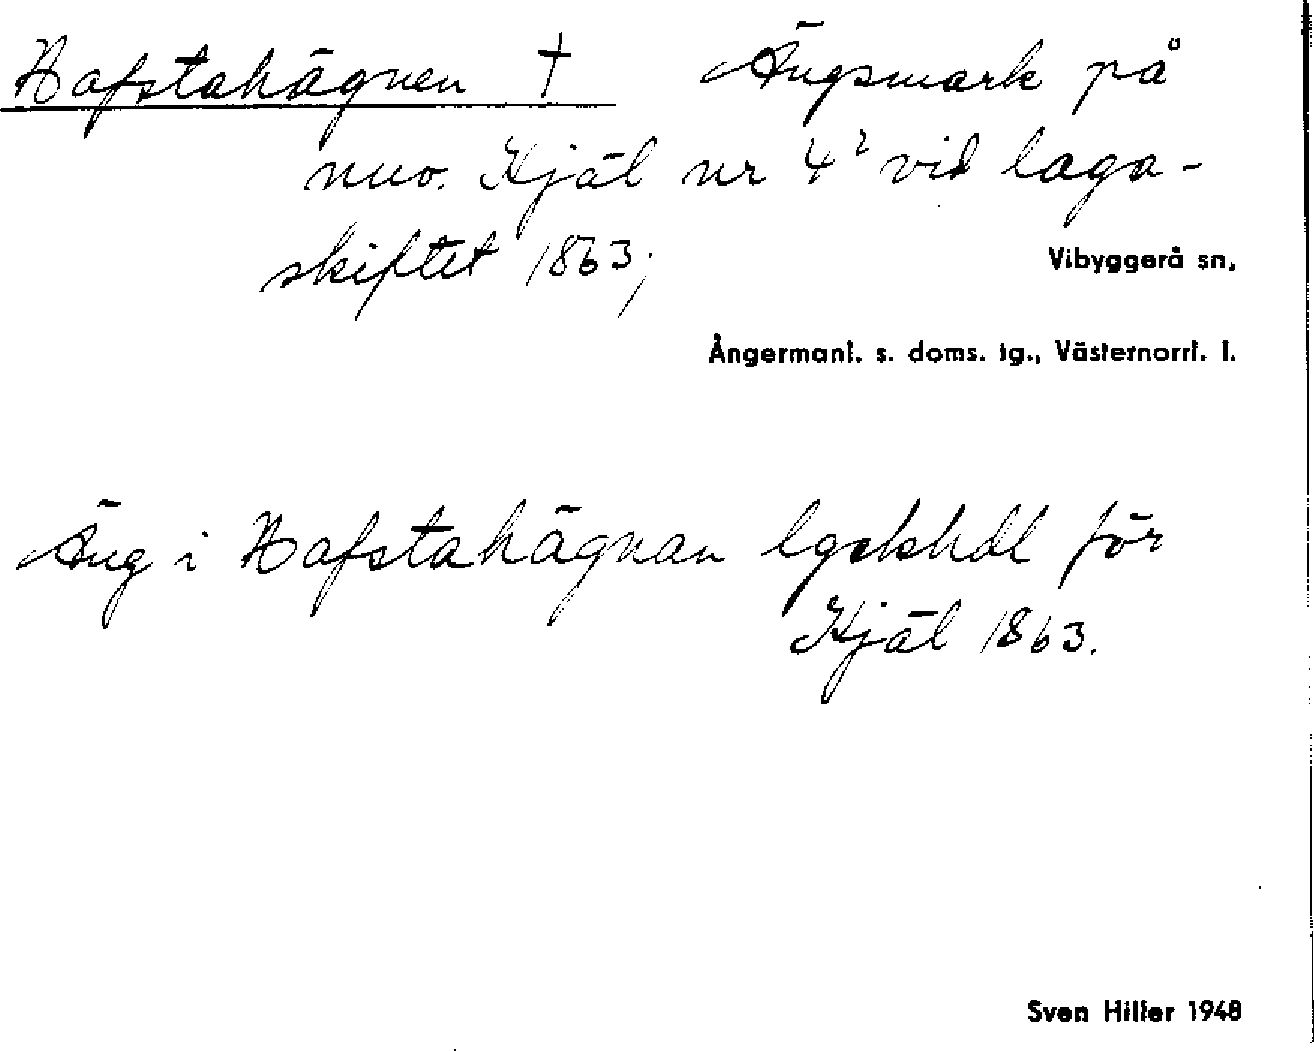 Hafstahägnen † Ängsmark på
nuv. Kjäl nr 4² vid laga-
skiftet 1863;
Vibyggerå sn,
Ångermanl. s. doms. tg., Västernorrl. l.
Äng i Hafstahägnan lgskhdl för
Kjäl 1863.
Sven Hiller 1948